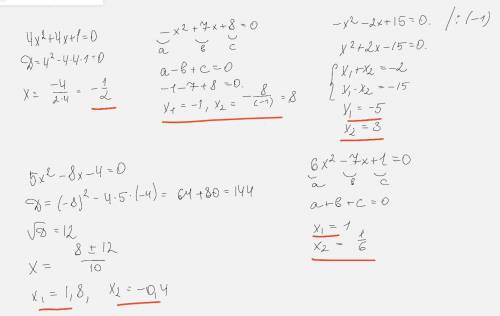 4x²+4x+1=0
D=4²-4·4·1=0
x= -4/2·4 = -1/2
-x²+7x+8=0
a b c
a-b+c=0
-1-7+8=0.
x₁=-1, x₂=-8/(-1)=8
-x²-2x+15=0. /:(-1)
x²+2x-15=0.
{ x₁+x₂=-2
x₁·x₂=-15
x₁=-5
x₂=3
5x²-8x-4=0
D=(-8)²-4·5·(-4)=64+80=144
√D=12
x= 8±12/10
x₁=1,8, x₂=-0,4
6x²-7x+1=0
a b c
a+b+c=0
x₁=1
x₂=1/6